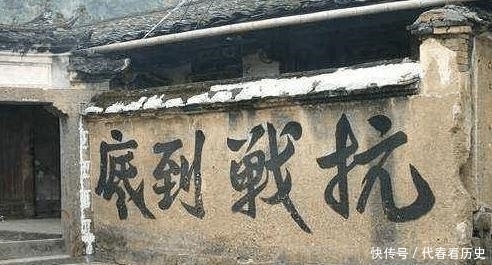 抗戰到底
快传号 / 代春看历史